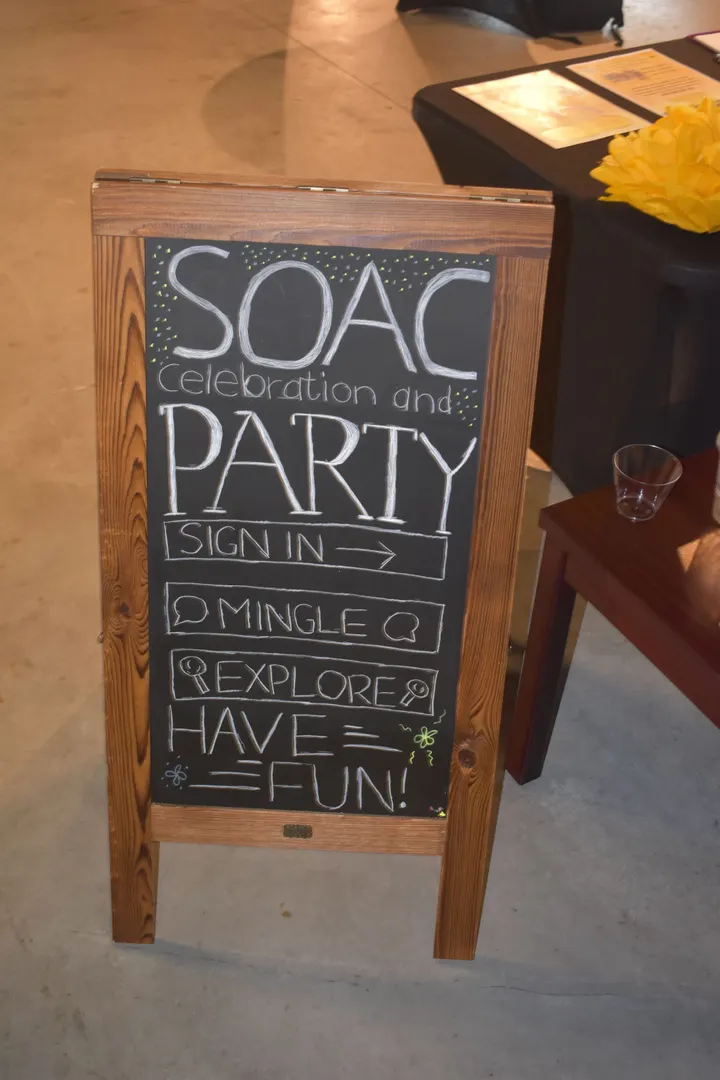 SOAC
Celebration and
PARTY
SIGN IN →
MINGLE
EXPLORE
HAVE
FUN!